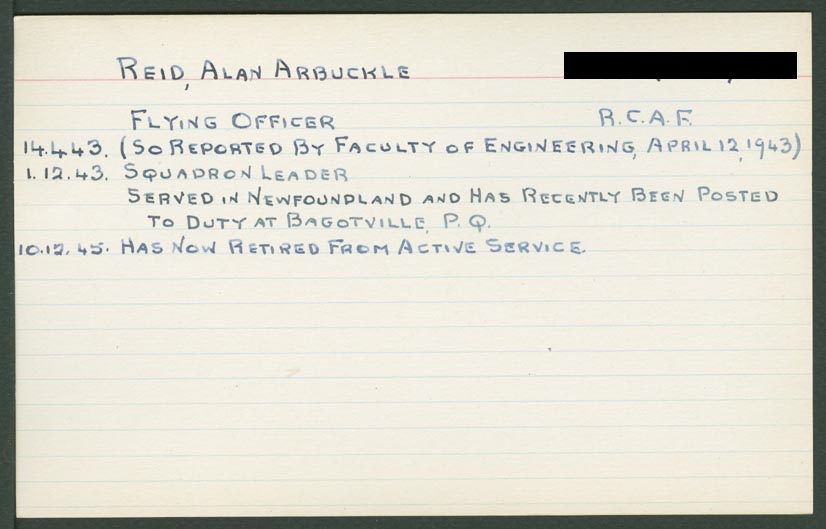 REID, ALAN ARBUCKLE
FLYING OFFICER R.C.A.F.
14.4.43. (SO REPORTED BY FACULTY OF ENGINEERING, APRIL 12, 1943)
1.12.43. SQUADRON LEADER
SERVED IN NEWFOUNDLAND AND HAS RECENTLY BEEN POSTED
TO DUTY AT BAGOTVILLE, P.Q.
10.12.45. HAS NOW RETIRED FROM ACTIVE SERVICE.